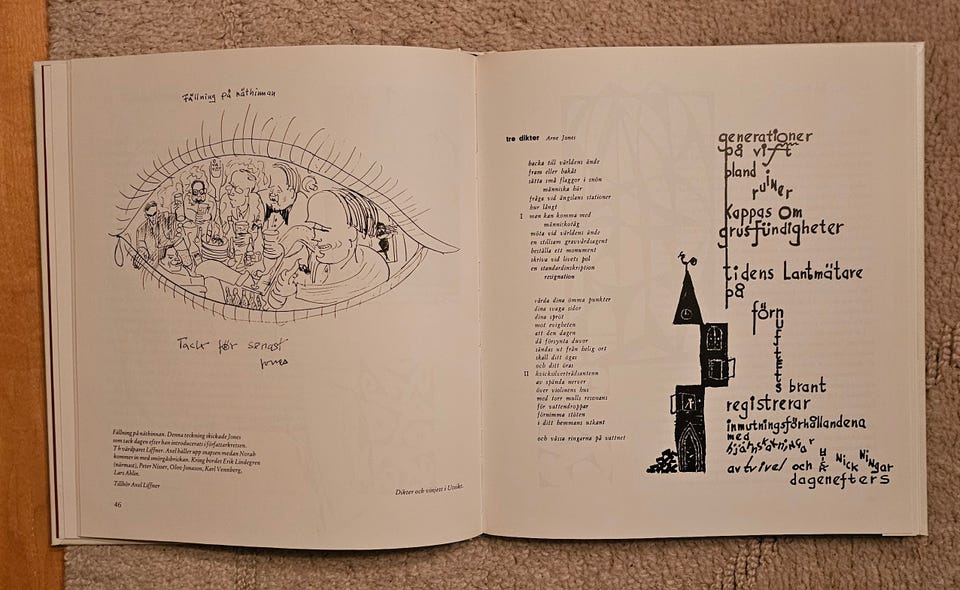 Fällning på näthinnan
Tack för senast
Jones
Fällning på näthinnan. Denna teckning skickade Jones
som tack dagen efter han introducerats i författarkretsen.
Th värdparet Liffner. Axel håller upp snapsen medan Norah
kommer in med smörgåsbrickan. Kring bordet Erik Lindegren
(närmast), Peter Nisser, Olov Jonason, Karl Vennberg,
Lars Ahlin.
Tillhör Axel Liffner
Dikter och vinjett i Utsikt.
46
tre dikter Arne Jones
backa till världens ände
fram eller bakåt
sätta små flaggor i snön
människa här
fråga vid ångolans stationer
hur långt
I man kan komma med
människotåg
möta vid världens ände
en stillsam gravvårdsagent
beställa ett monument
skriva vid livets pol
en standardinskription
resignation
vårda dina ömma punkter
dina svaga sidor
dina spröt
mot evigheten
att den dagen
då försynta duvor
sändas ut från helig ort
skall ditt ögas
och ditt öras
II kvicksilverträdsantenn
av spända nerver
över violinens hus
med torr mulls resonans
för vattendroppar
förnimma stöten
i ditt hemmans utkant
och växa ringarna på vattnet
generationer
på vift
bland
ruiner
kappas om
grusfyndigheter
tidens Lantmätare
på
förnuftets
brant
registrerar
inmutningsförhållandena
med
hjärnskakningar
av tvivel och HicK Nickningar
dagenefters